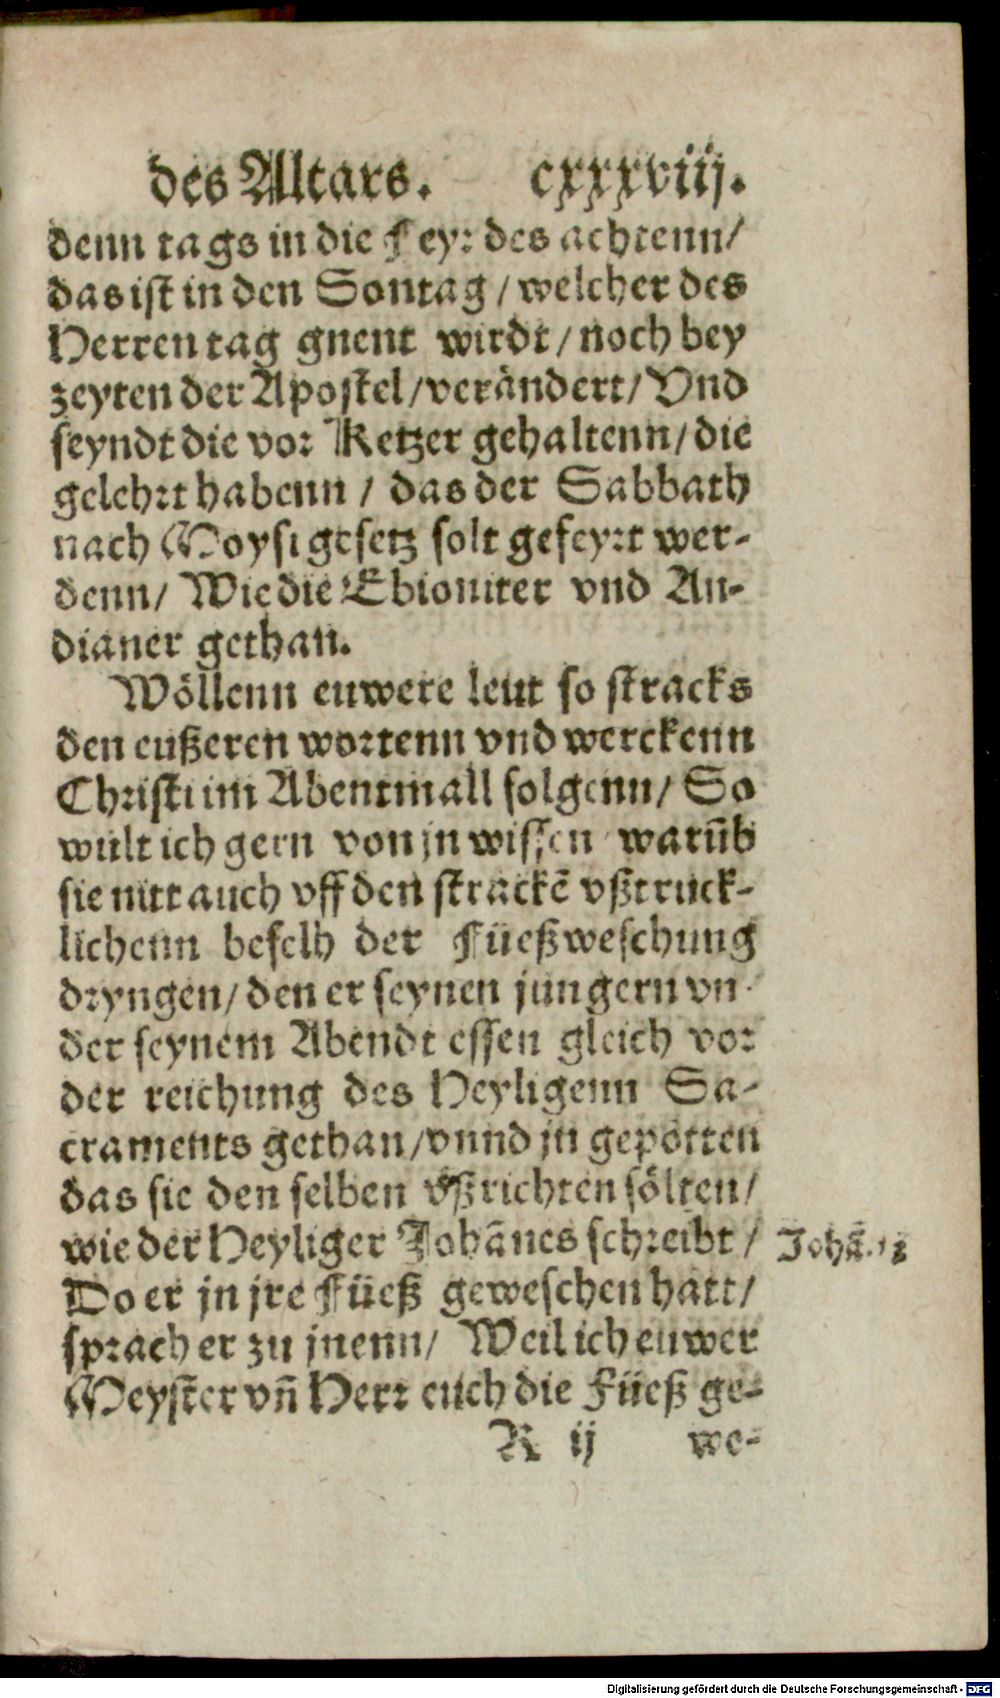 des Altars. cxxxviij.
denn tags in die Feyr des achtenn/
das ist in den Sontag / welcher des
Herren tag gnent wirdt / noch bey
zeyten der Apostel / verändert / Vnd
seyndt die vor Ketzer gehaltenn / die
gelehrt habenn / das der Sabbath
nach Moysi gesetz solt gefeyrt wer-
denn / Wie die Ebioniter vnd An-
dianer gethan.
Wöllenn euwere leut so stracks
den eußeren wortenn vnd werckenn
Christi im Abentmall folgenn / So
wült ich gern von jn wissen warũb
sie nitt auch vff den strackẽ vßtruck-
lichenn befelh der Füeßweschung
dryngen / den er seynen jungern vn-
der seynem Abendt essen gleich vor
der reichung des Heyligenn Sa-
craments gethan / vnnd jn gepotten
das sie den selben vßrichten sölten /
wie der Heyliger Johãnes schreibt /
Johã. 13
Do er jn jre Füeß geweschen hatt /
sprach er zu jnenn / Weil ich euwer
Meyster vñ Herr euch die Füeß ge-
R ij we-
Digitalisierung gefördert durch die Deutsche Forschungsgemeinschaft - DFG